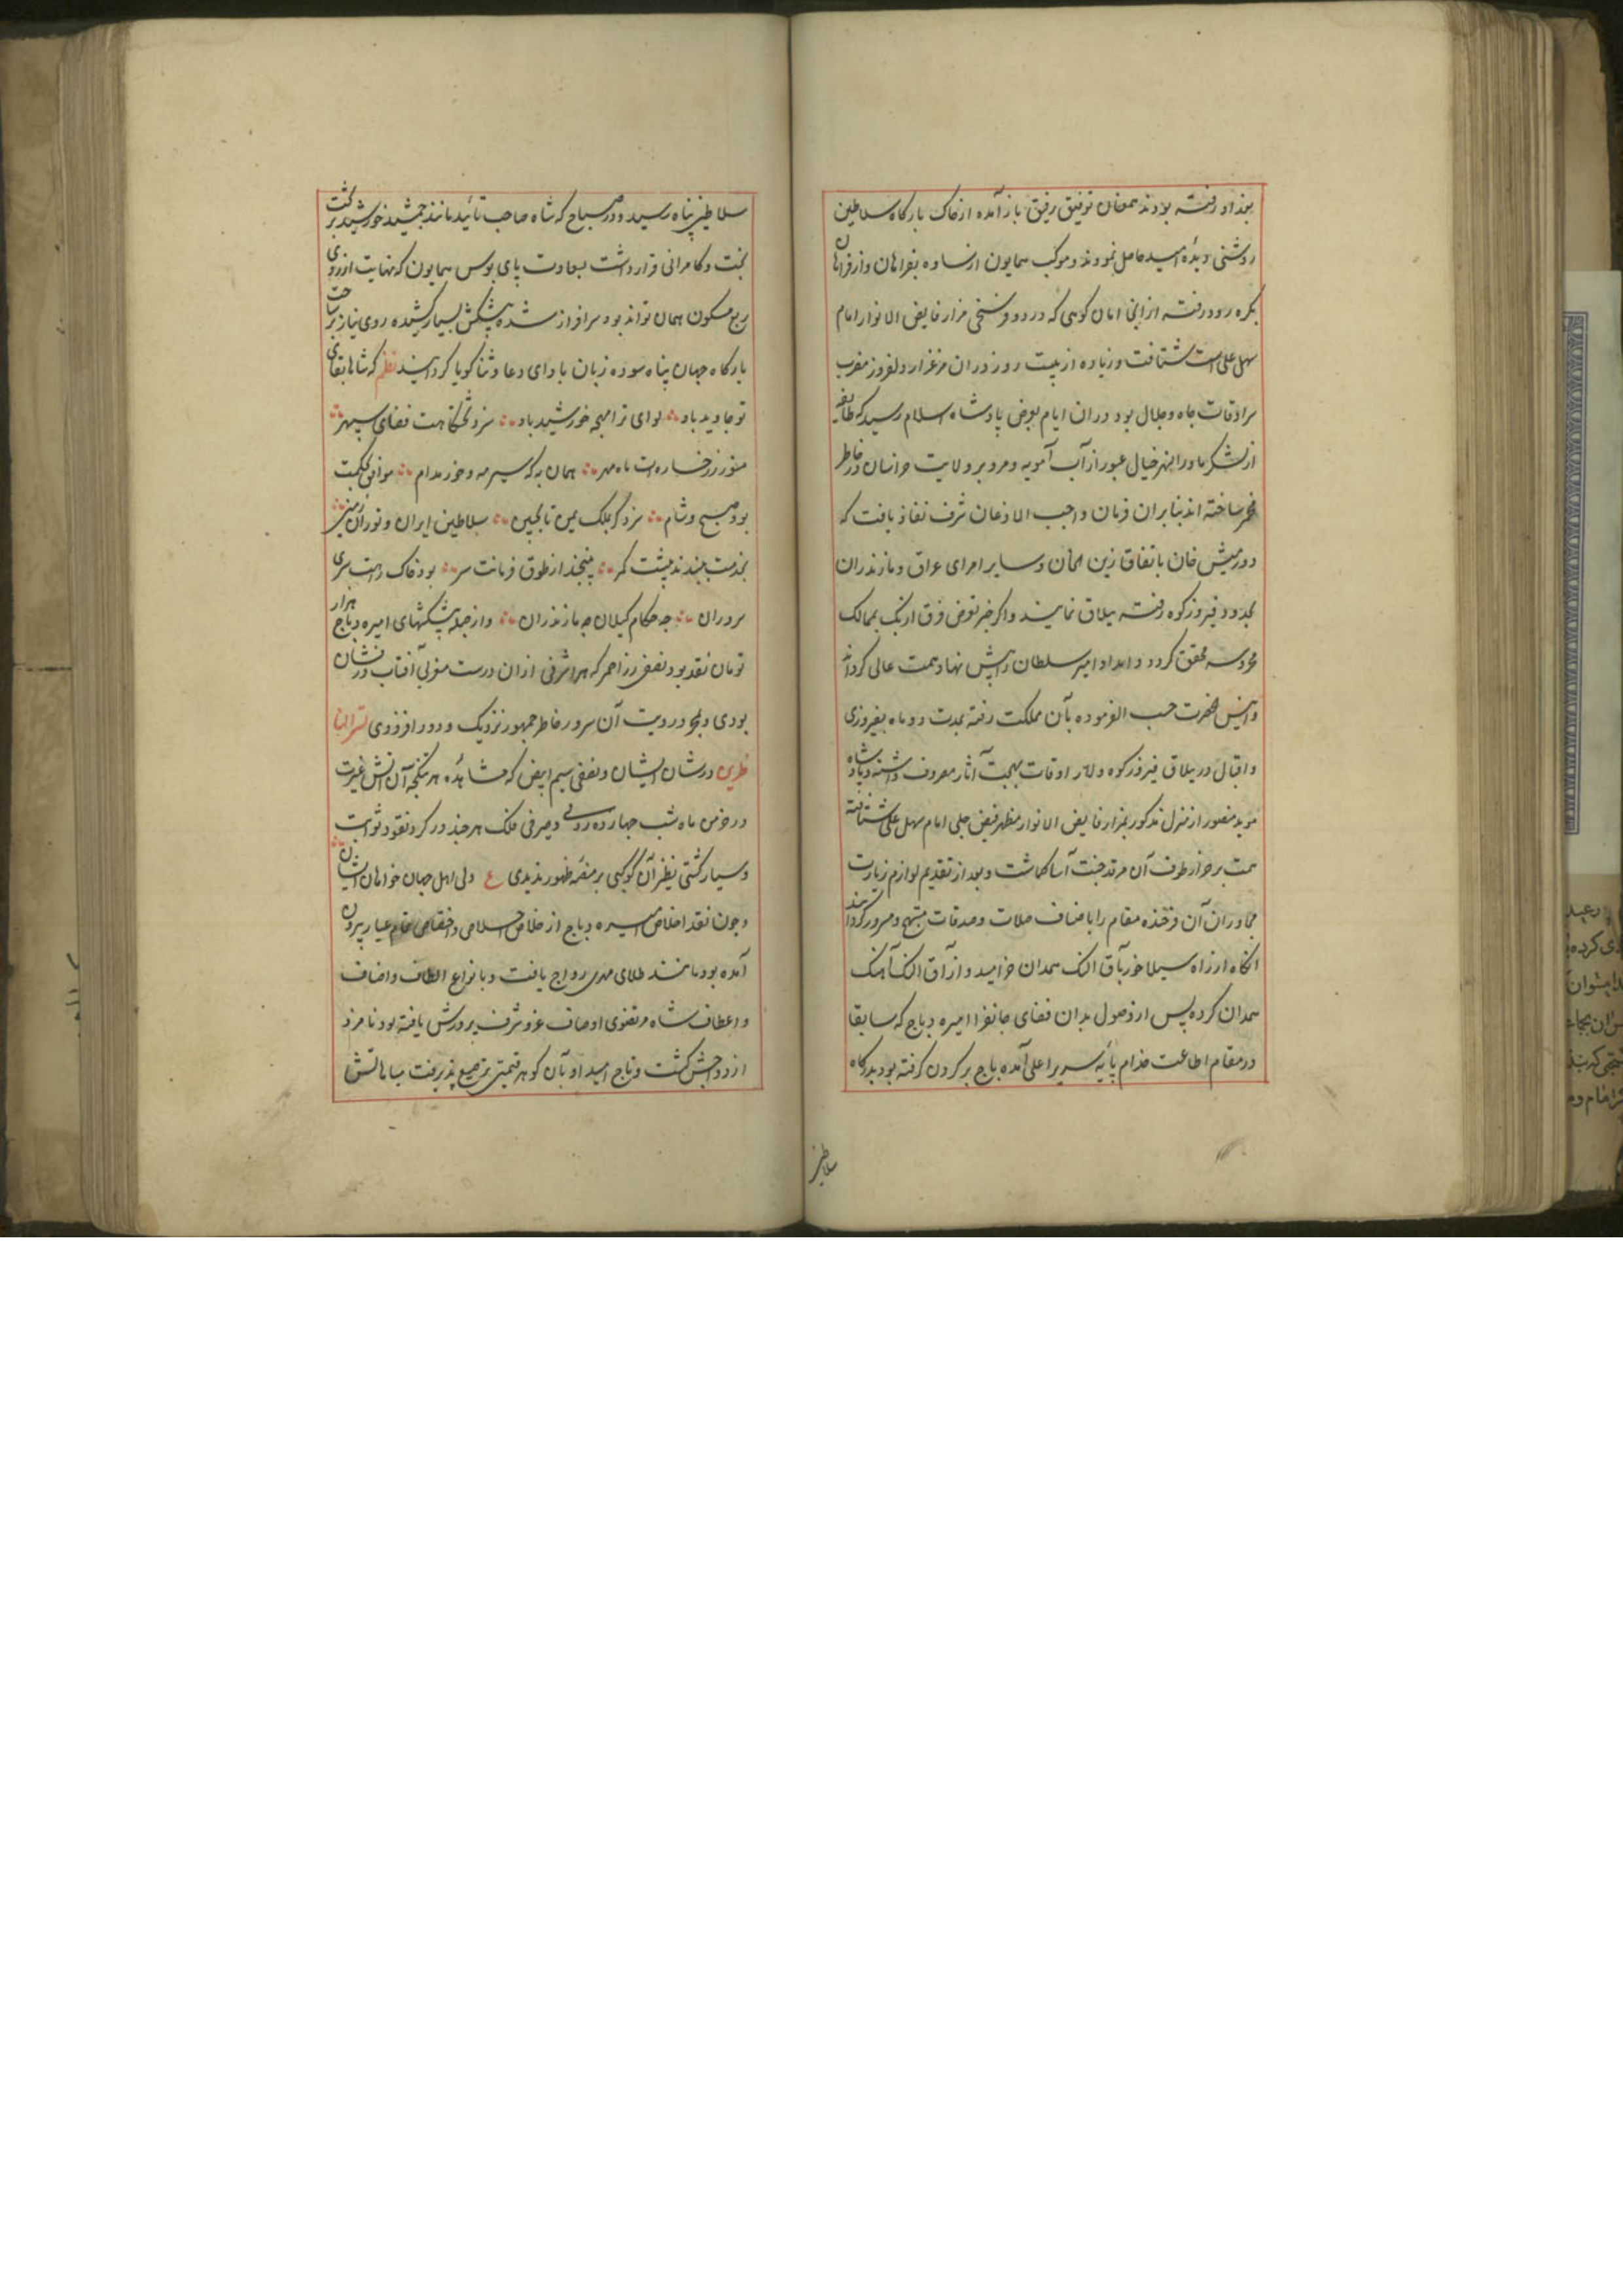 بغداد رفته بودند همعنان توفیق رفیق باز آمده از خاک بارکاه سلاطین
روشنی دیدهٔ امید حاصل نمودند و موکب همایون از ساوه بفراهان و از فراهان
بکره رود رفته از انجا بدان کوهی که در دو فرسخی مزار فایض الانوار امام
سهل علی است شتافت و زیاده از بیست روز در ان مرغزار دلفروز مضرب
سرادقات جاه و جلال بود در ان ایام بعرض پادشاه اسلام رسید که طایفه
از لشکر ماوراءالنهر خیال عبور از آب آمویه و مرور بر ولایت خراسان در خاطر
مخمر ساخته اند بنابران فرمان واجب الاذعان شرف نفاذ یافت که
دورمیش خان باتفاق زین‌ خان و سایر امرای عراق و مازندران
بحدود فیروزکوه رفته ییلاق نمایند و اکر خبر تعرض فرق ازبک بممالک
محروسه محقق کردد و امداد امیر سلطان را پیش نهاد همت عالی کردانند
و ان حضرت حسب الفرموده بآن مملکت رفته بمدت دو ماه بفیروزی
و اقبال در ییلاق فیروزکوه و لار اوقات بهجت آثار معروف داشته و پادشاه
موید منصور از منزل مذکور بمزار فایض الانوار مظهر فیض جلی امام سهل علی شتافته
همت بر احراز طوف آن مرقد جنت آسا کماشت و بعد از تقدیم لوازم زیارت
مجاوران آن فرخنده مقام را باصناف صلات و صدقات مبتهج و مسرور کردانید
انکاه از راه سیلاخور بآق النک همدان خرامید و از آق النک آهنک
همدان کرده پس از وصول بدان فضای جانفزا امیره دباج که سابقا
در مقام اطاعت خدام پایهٔ سریر اعلی آمده باج بر کردن کرفته بود بدرکاه
سلاطین
سلاطین پناه رسید و در صباح که شاه صاحب تائید مانند جمشید خورشید بر تخت
بخت و کامرانی قرار داشت بسعادت پای بوس همایون که نهایت ارزوی
ربع مسکون همان تواند بود سرافراز شده پیشکش بسیار کشیده روی نیاز بر ساحت
بارکاه جهان پناه سوده زبان بادای دعا و ثنا کویا کردانید نظم که شاها بقای
تو جاوید باد لوای ترا مهجه خورشید باد سزد تختکاهت فضای سپهر
منور ز رخساره‌ات ماه مهر همان به که سیر مه و خور مدام موافق بحکمت
بود صبح و شام سزد کز بلک یمن تا بچین سلاطین ایران و توران زمین
بخدمت ببندند پیشت کمر نپیچند از طوق فرمانت سر بود خاک راهت سر
سروران چه حکام کیلان چه مازندران و از جمله پیشکشهای امیره دباج هزار
تومان نقد بود نصفی زر احمر که هر اشرفی از ان درست مغربی آفتاب درخشان
بودی و بمجرد رویت آن سرور خاطر جمهور نزدیک و دور افزودی تسر النا
ظرین در شان ایشان و نصفی سیم ابیض که مشاهدهٔ هر تنکجه آن آتش غیرت
در خرمن ماه شب چهارده زدی و صیرفی فلک هر چند در کرد نقود ثوابت
و سیار کشتی نظیر آن کوکبی بر صفحه ظهور ندیدی ع ولی اهل جهان خواهان ایشان
و چون نقد اخلاص امیره دباج از خلاص اسلامی و اختصاص تمام عیار بیرون
آمده بود مانند طلای مهدی رواج یافت و بانواع الطاف و اضاف
و اعطاف شاه مرتضوی اوصاف عز و شرف پرورش یافته بود نامزد
ازدواجش کشت و تاج امید او بآن کوهر قیمتی ترصیع پذیرفت مباهاتش